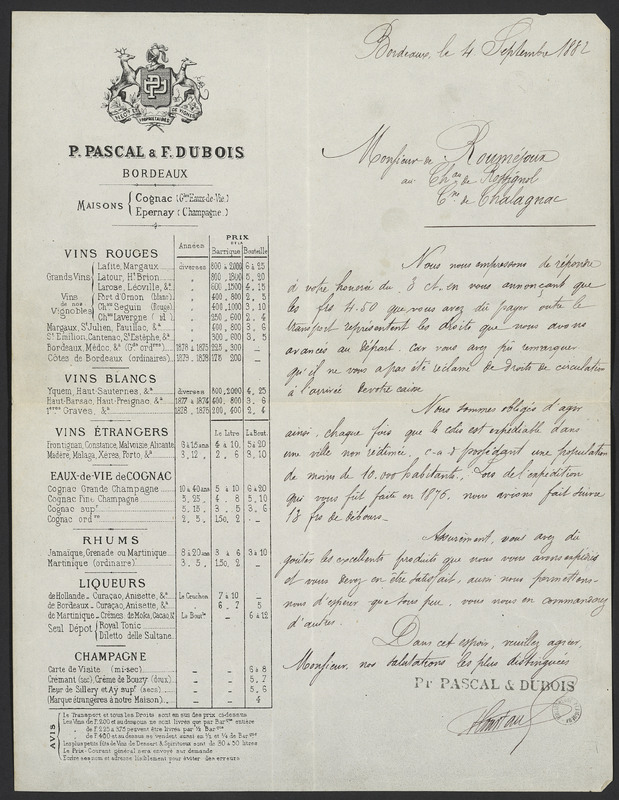 PP
PROPRIÉTAIRES
P. PASCAL & F. DUBOIS
BORDEAUX
MAISONS { Cognac (Gdes Eaux-de-Vie.)
Epernay (Champagne.)
Années PRIX DE LA Barrique Bouteille
VINS ROUGES
Grands Vins { Lafite, Margaux diverses 800 à 2000 6 à 25
Latour, Ht Brion 5 20
Larose, Léoville, &a 600 1500 4 15
Vins de nos Vignobles { Fort d'Ornon (blanc) 400 800 2, 5
Chau Seguin (Rouge) 400 1000 3, 10
Chau Lavergne (id) 250 600 2, 4
Margaux, St Julien, Pauillac, &a 400 800 3, 6
St Emilion, Cantenac, St Estèphe, &a 300 800 3, 5
Bordeaux, Médoc, &a (Gds ordres) 1878 à 1875 225 300 —
Côtes de Bordeaux (ordinaires) 1879 . 1878 178 200 —
VINS BLANCS
Yquem, Haut-Sauternes, &a diverses 800 2000 4, 25
Haut-Barsac, Haut-Preignac, &a 1877 à 1874 400 800 3, 6
1ères Graves, &a 1878 . 1875 200 400 2, 4
VINS ÉTRANGERS Le Litre La Bout.
Frontignan, Constance, Malvoisie, Alicante 6 à 15 ans 4 à 10. 5 à 20
Madère, Malaga, Xérès, Porto, &a 3, 12. 2, 6 3, 10
EAUX-DE-VIE DE COGNAC
Cognac Grande Champagne 10 à 40 ans 5 à 10 6 à 20
Cognac Fine Champagne 5, 25. 4, 8 5, 10
Cognac supr 5, 15. 3, 5 3, 6
Cognac ordre 2, 5. 1.50, 2 . —
RHUMS
Jamaïque, Grenade ou Martinique 8 à 20 ans 3 à 6 3 à 10
Martinique (ordinaire) 3, 5. 1.50, 2 —
LIQUEURS
de Hollande _ Curaçao, Anisette, &a Le Cruchon 7 à 10 —
de Bordeaux _ Curaçao, Anisette, &a . 6, 7 5
de Martinique _ Crèmes de Moka, Cacao, &a La Boutlle — 6 à 12
Seul Dépôt { Royal Tonic
Diletto delle Sultane
CHAMPAGNE
Carte de Visite (mi-sec) — — 6 à 8
Crémant (sec), Crème de Bouzy (doux) — — 5, 7
Fleur de Sillery et Ay supr (secs) — — 5, 6
(Marque étrangères à notre Maison) — — 4
AVIS { Le Transport et tous les Droits sont en sus des prix ci-dessus
Les Vins de F. 200 et au dessous ne sont livrés que par Barque entière
_ de F. 225 à 375 peuvent être livrés par ½ Barque
_ de F. 400 et au dessus se vendent aussi en ½ et ¼ de Barque
Les plus petits fûts de Vins de Dessert & Spiritueux sont de 30 à 50 litres
Le Prix-Courant général sera envoyé sur demande
Ecrire ses nom et adresse lisiblement pour éviter des erreurs
Bordeaux, le 4 Septembre 1882
Monsieur de Rouméjoux
au Chau de Rossignol
Cne de Chalagnac
Nous nous empressons de répondre
à votre honorée du 3 ct. en vous annonçant que
les frs 4.50 que vous avez dû payer outre le
transport représentent les droits que nous avons
avancés au départ. Car vous avez pu remarquer
qu'il ne vous a pas été réclamé de droits de circulation
à l'arrivée de votre caisse
Nous sommes obligés d'agir
ainsi, chaque fois que le colis est expédiable dans
une ville non rédimée, c-a-d possédant une population
de moins de 10.000 habitants. Lors de l'expédition
qui vous fut faite en 1876, nous avions fait suivre
13 frs de débours _
Assurément, vous avez dû
goûter les excellents produits que nous vous avons expédiés
et vous devez en être satisfait, aussi nous permettons-
nous d'espérer que sous peu, vous nous en commanderez
d'autres.
Dans cet espoir, veuillez agréer,
Monsieur, nos salutations les plus distinguées
Pr PASCAL & DUBOIS